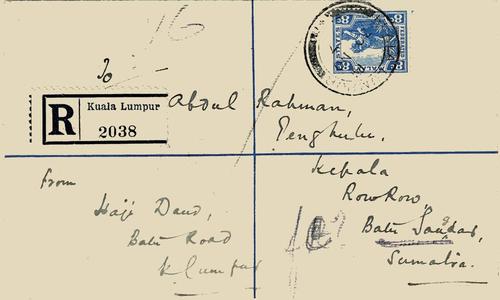 16
To
R Kuala Lumpur
2038
Abdul Rahman,
Penghulu,
Kepala
Row Row,
Batu Sangkar,
Sumatra.
From
Haji Daud,
Batu Road
K Lumpur
8c 8c